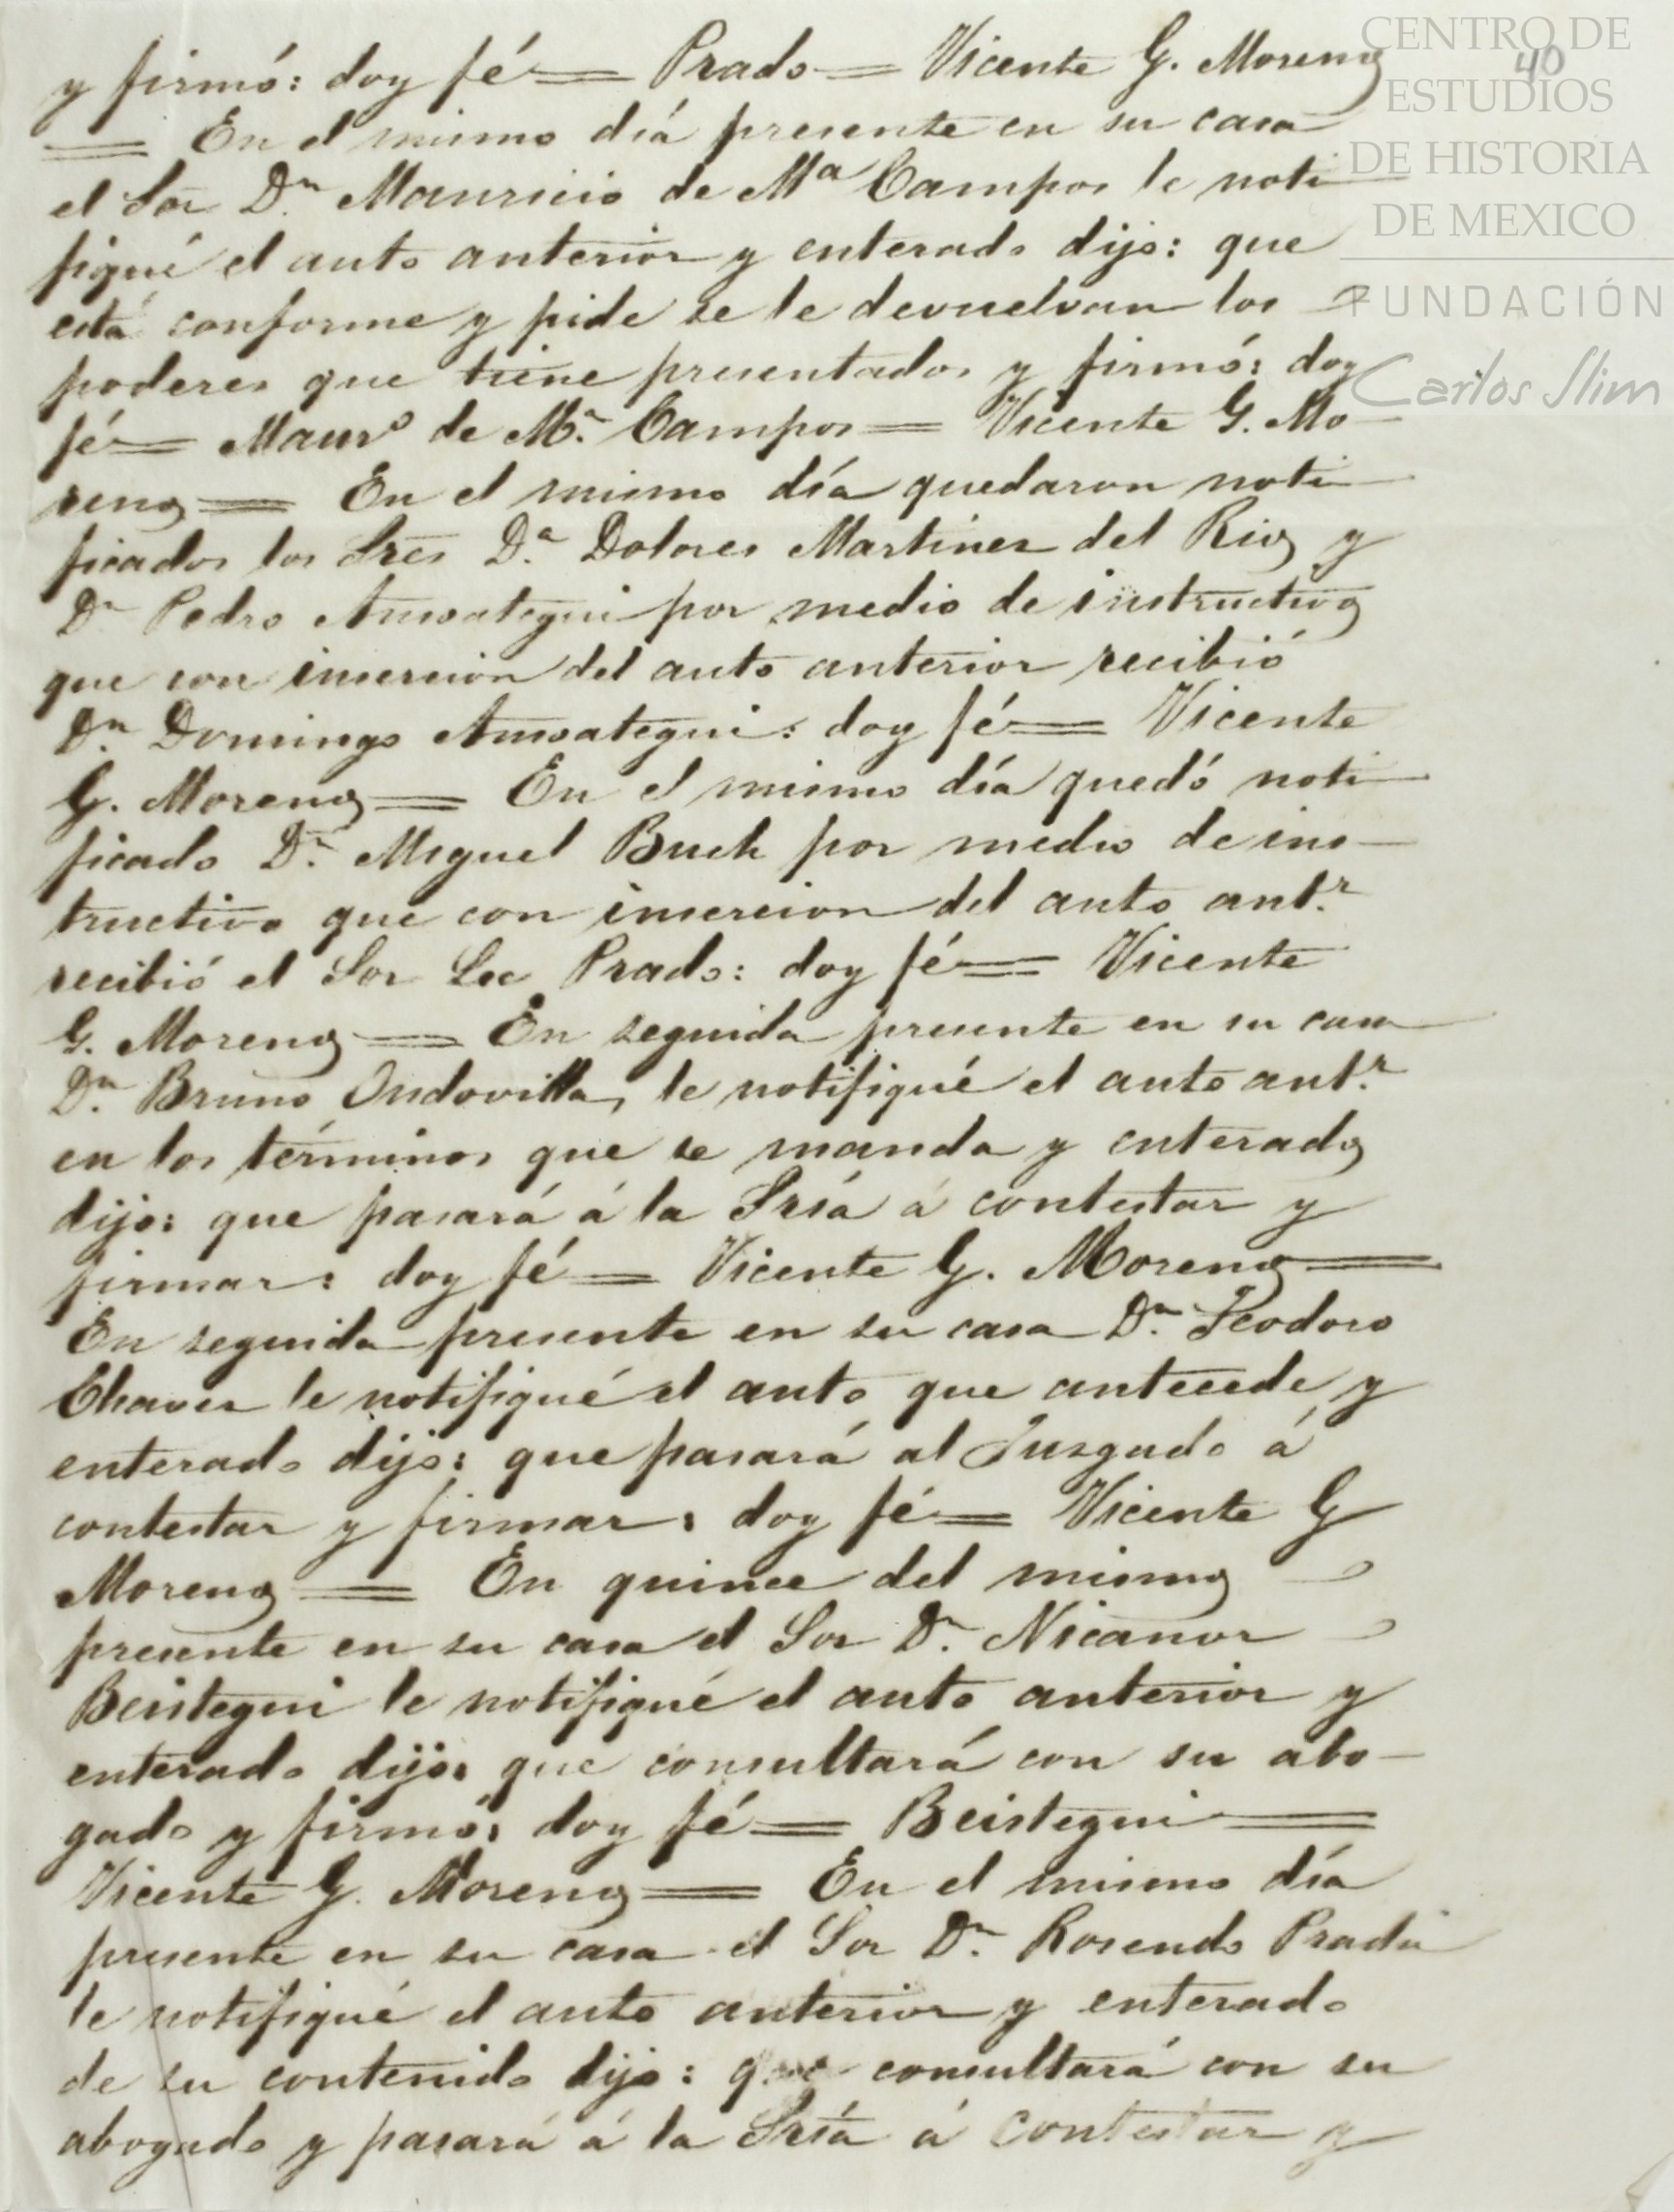 CENTRO DE
ESTUDIOS
DE HISTORIA
DE MEXICO
FUNDACIÓN
Carlos Slim
40
y firmó: doy fé = Prado = Vicente G. Moreno
= En el mismo día presente en su casa
el Sor Dn. Mauricio de Ma Campos le noti
fiqué el auto anterior y enterado dijo: que
está conforme y pide se le devuelvan los
poderes que tiene presentados y firmó: doy
fé = Maur.o de M.a Campos = Vicente G. Mo
reno = En el mismo día quedaron noti
ficados los Sres D.a Dolores Martinez del Rio y
Dn Pedro Amoategui por medio de instructivo
que con insercion del auto anterior recibió
Dn. Domingo Amoategui: doy fé = Vicente
G. Moreno = En el mismo día quedó noti
ficado Dn. Miguel Buch por medio de ins—
tructivo que con insercion del auto antr.
recibió el Sor Lic Prado: doy fé = Vicente
G. Moreno = En seguida presente en su casa
Dn. Bruno Ondovilla, le notifiqué el auto antr.
en los términos que se manda y enterado
dijo: que pasará á la Sría á contestar y
firmar: doy fé = Vicente G. Moreno =
En seguida presente en su casa Dn. Teodoro
Chavez le notifiqué el auto que antecede y
enterado dijo: que pasará al Juzgado á
contestar y firmar: doy fé = Vicente G
Moreno = En quince del mismo
presente en su casa el Sor Dn. Nicanor
Beistegui le notifiqué el auto anterior y
enterado dijo: que consultará con su abo—
gado y firmó: doy fé = Beistegui =
Vicente G. Moreno = En el mismo día
presente en su casa el Sor Dn. Rosendo Prado
le notifiqué el auto anterior y enterado
de su contenido dijo: que consultará con su
abogado y pasará á la Sría á contestar y